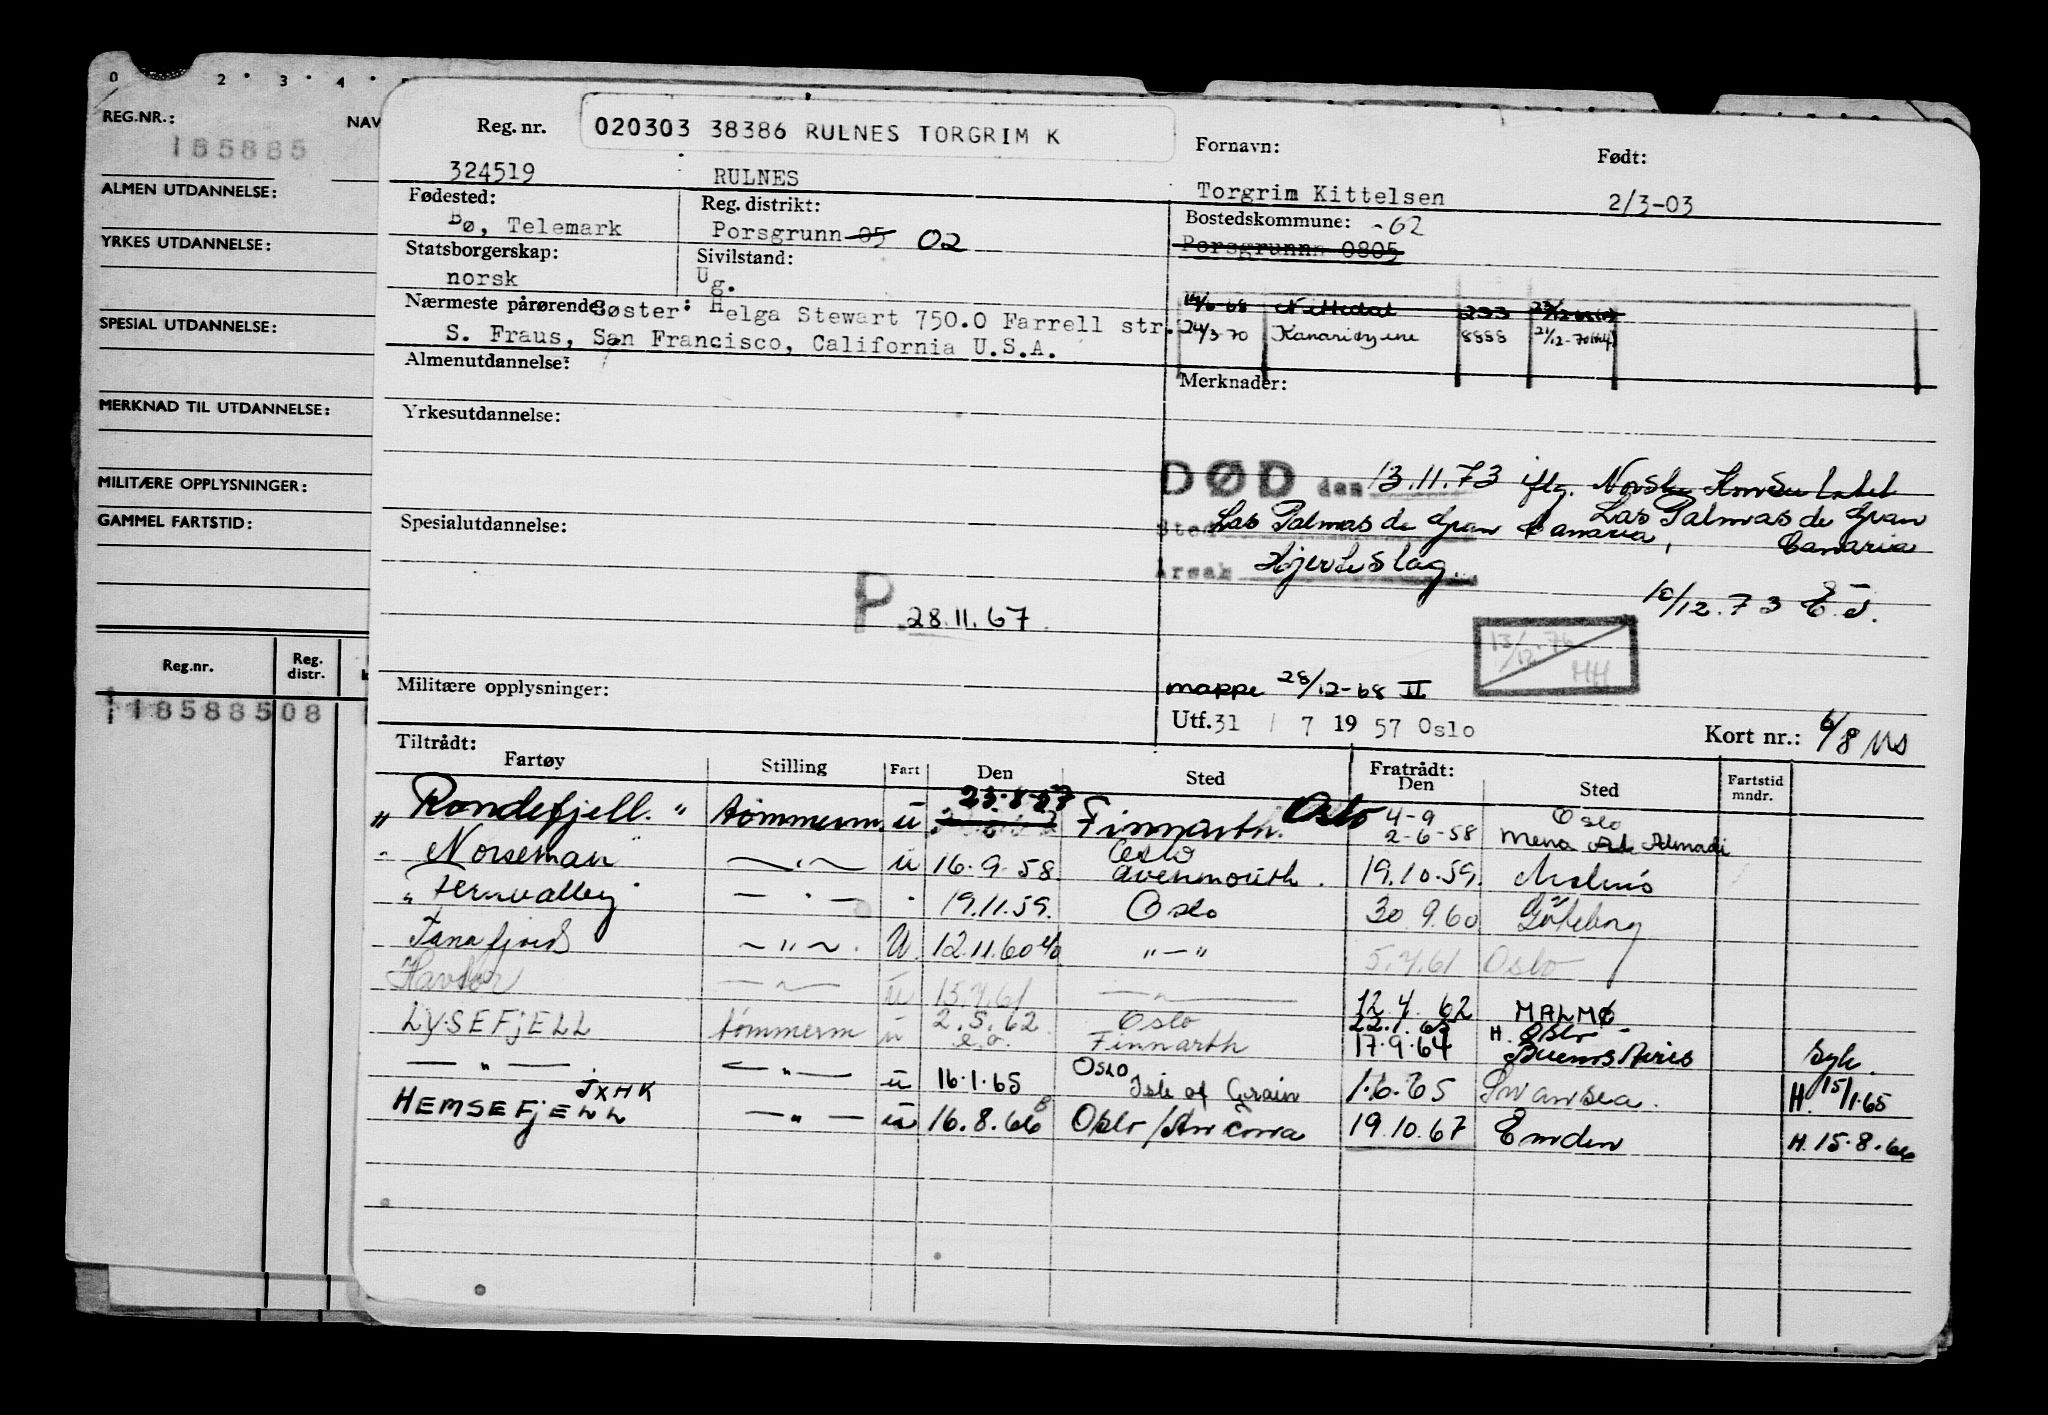 0 2 · 3 · 4 ·
REG.NR.:
NAV
185885
ALMEN UTDANNELSE:
YRKES UTDANNELSE:
SPESIAL UTDANNELSE:
MERKNAD TIL UTDANNELSE:
MILITÆRE OPPLYSNINGER:
GAMMEL FARTSTID:
Reg.nr. Reg. distr.
18588508
Reg. nr. 020303 38386 RULNES TORGRIM K Fornavn: Født:
324519 RULNES Torgrim Kittelsen 2/3-03
Fødested: Reg. distrikt: Bostedskommune: -62
Bø, Telemark Porsgrunn 05 02 Porsgrunn 0805
Statsborgerskap: Sivilstand:
norsk Ug.
Nærmeste pårørende: Søster: Helga Stewart 750.0 Farrell str.
S. Fraus, San Francisco, California U.S.A.
14/6-68 Nittedal 233
24/3-70 Kanariøyene 8888 21/12-70
Almenutdannelse: Merknader:
Yrkesutdannelse:
DØD den 13.11.73 iflg. Norske Konsulatet
Las Palmas de Gran Canaria
Spesialutdannelse:
Sted Las Palmas de Gran Canaria,
Årsak Hjerteslag.
10/12.73 E.J.
P. 28.11.67.
13/12-76 HH
Militære opplysninger: mappe 28/12-68 II
Utf. 31 / 7 19 57 Oslo Kort nr.: 6/8 MS
Tiltrådt: Fratrådt:
Fartøy Stilling Fart Den Sted Den Sted Fartstid mndr.
" Rondefjell. " tømmerm. u 23.8-57 Finnarth. Oslo 4-9 Oslo
2-6-58 Mena Al Ahmadi
" Norseman — " — u 16.9.58. Oslo Avenmouth. 19.10.59. Malmö
" Fernvalley — " — " 19.11.59. Oslo 30 9.60 Göteborg
Tanafjord ~ " ~. U. 12.11.60 " — " 5.4.61 Oslo
Havtor — " — u 15.4.61 — " — 12 4 62 MALMØ
LYSEFJELL tømmerm u 2.5.62. Oslo 22.1.63 H. Oslo
e.o. Finnarth 17.9.64 Buenos Aires Syk.
— " — — " — u 16.1.65 Oslo Isle of Grain 1.6.65 Swansea. H. 15/1.65
HEMSEFJELL JXHK — " — u 16.8.66 Oslo/Ancona 19.10.67 Emden H. 15.8.66